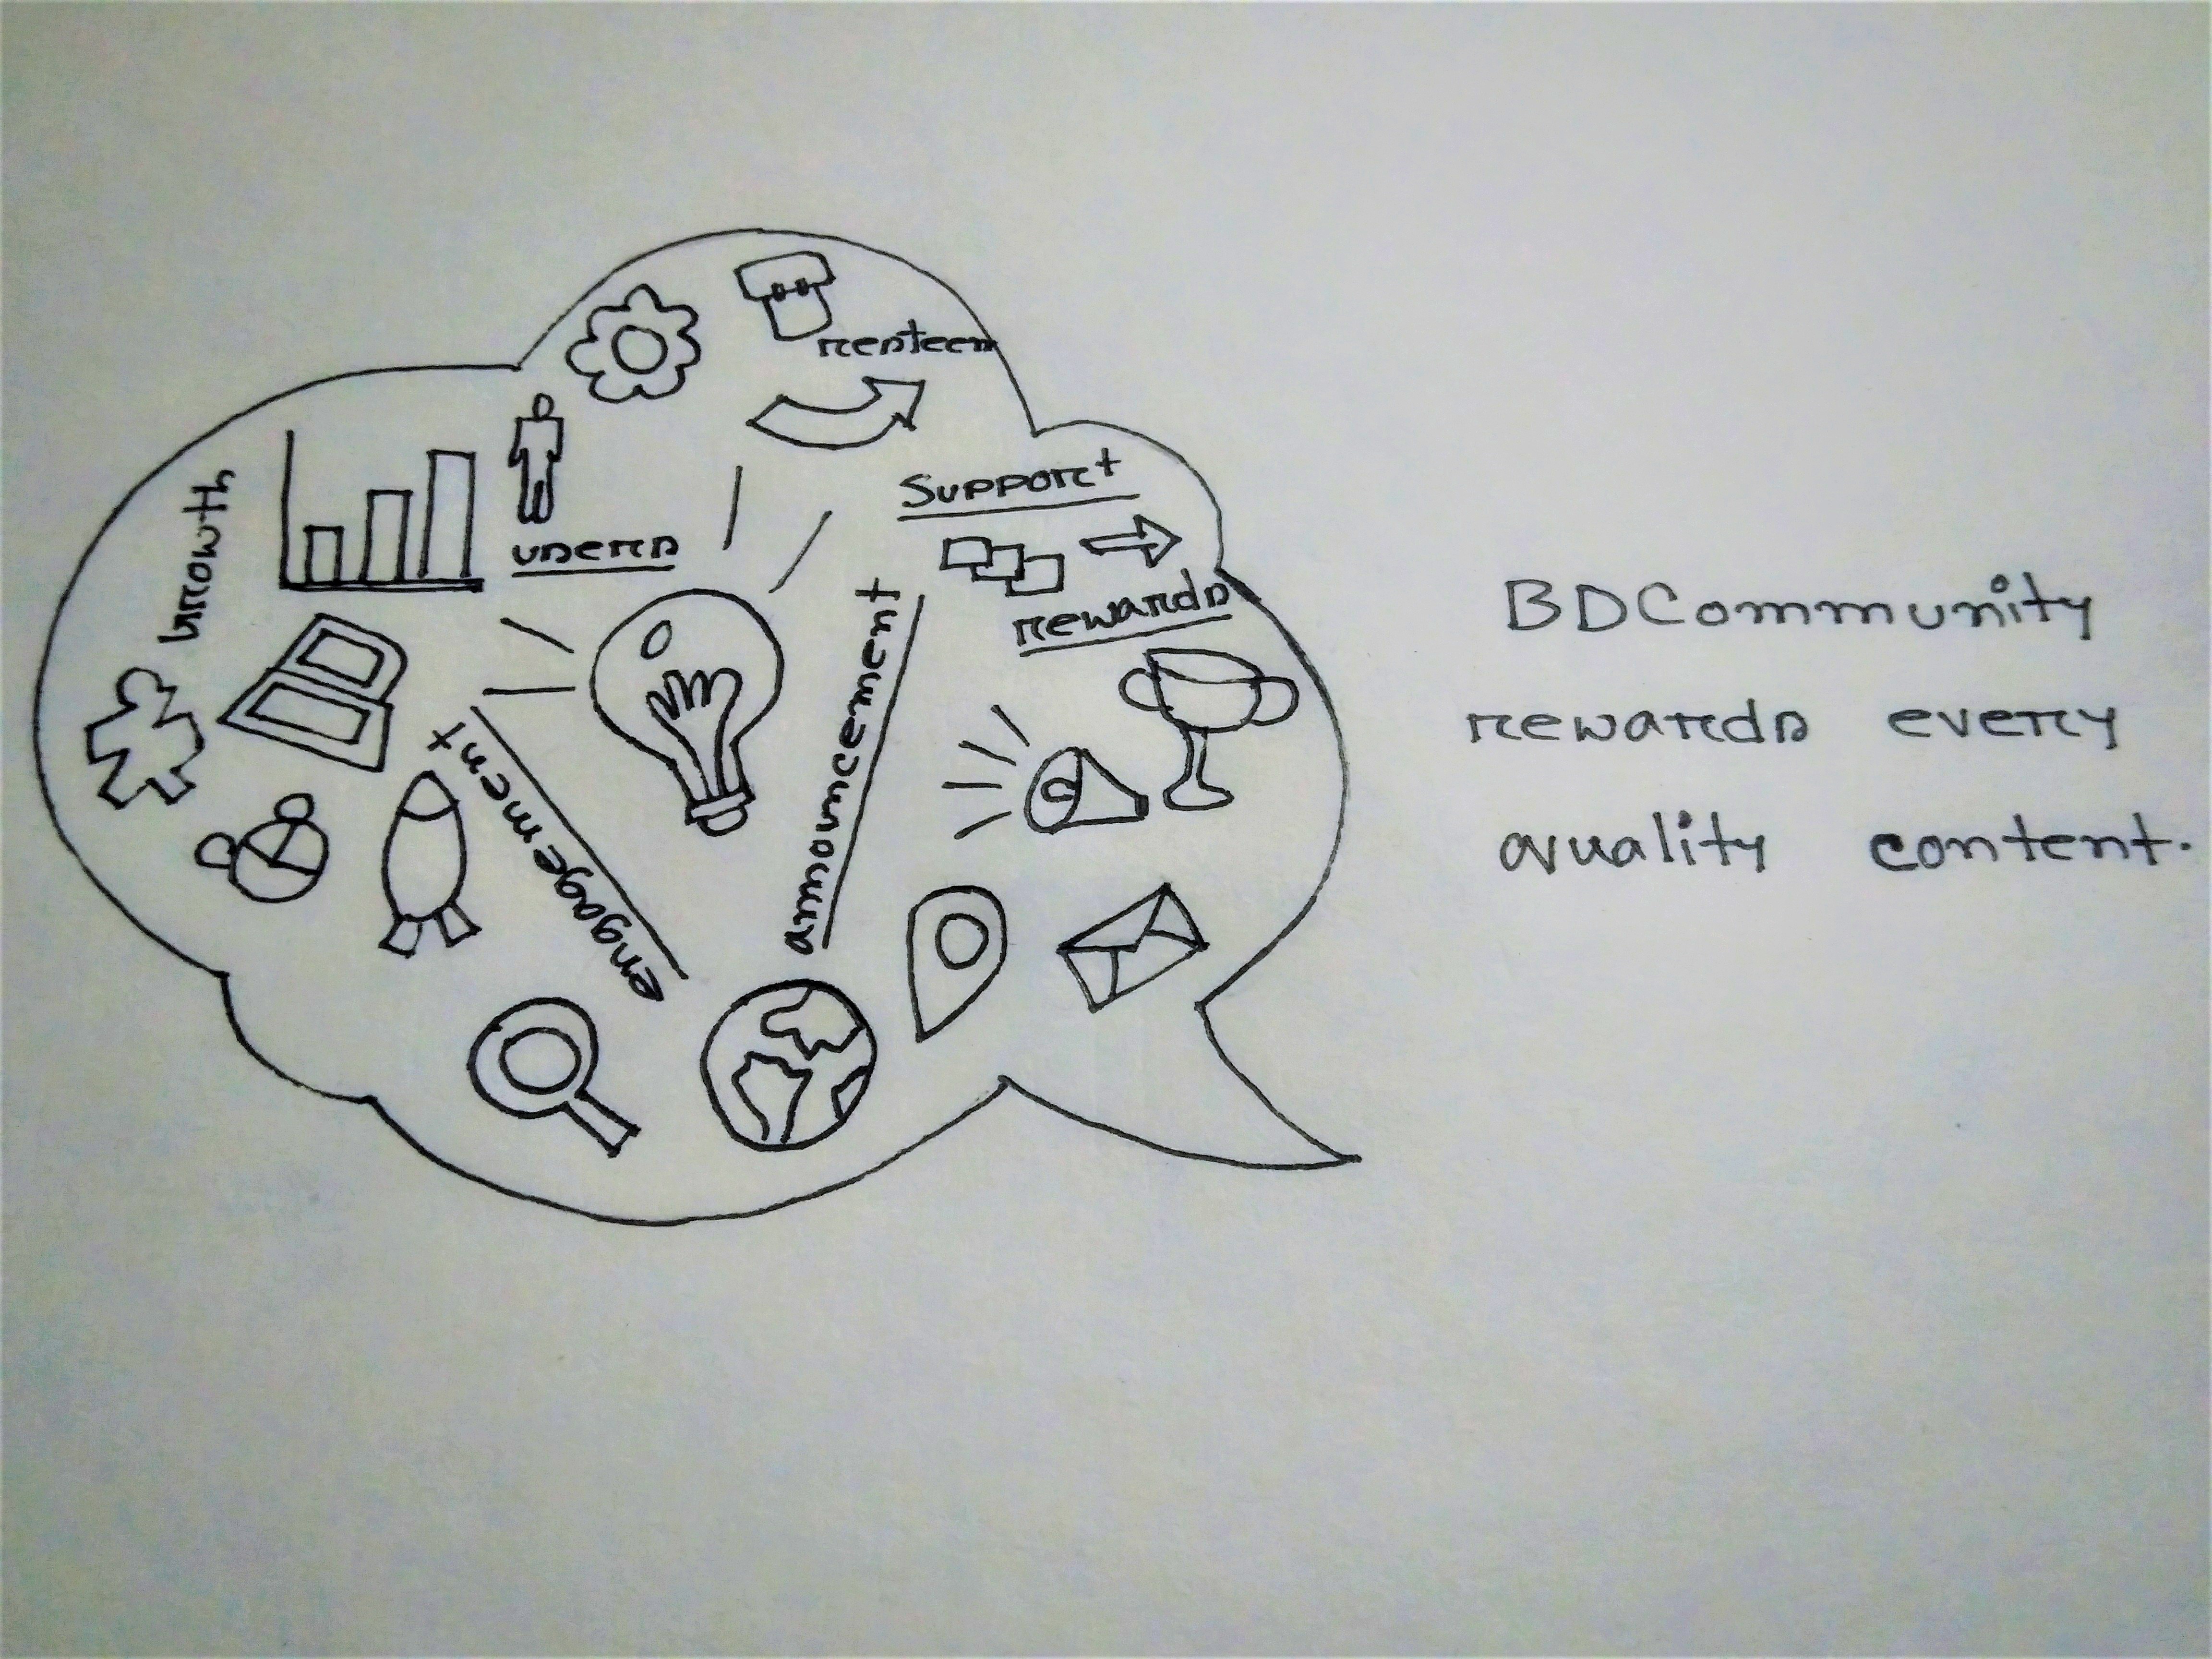 resteem
Support
growth
users
rewards
announcement
engagement
BDCommunity
rewards every
quality content.